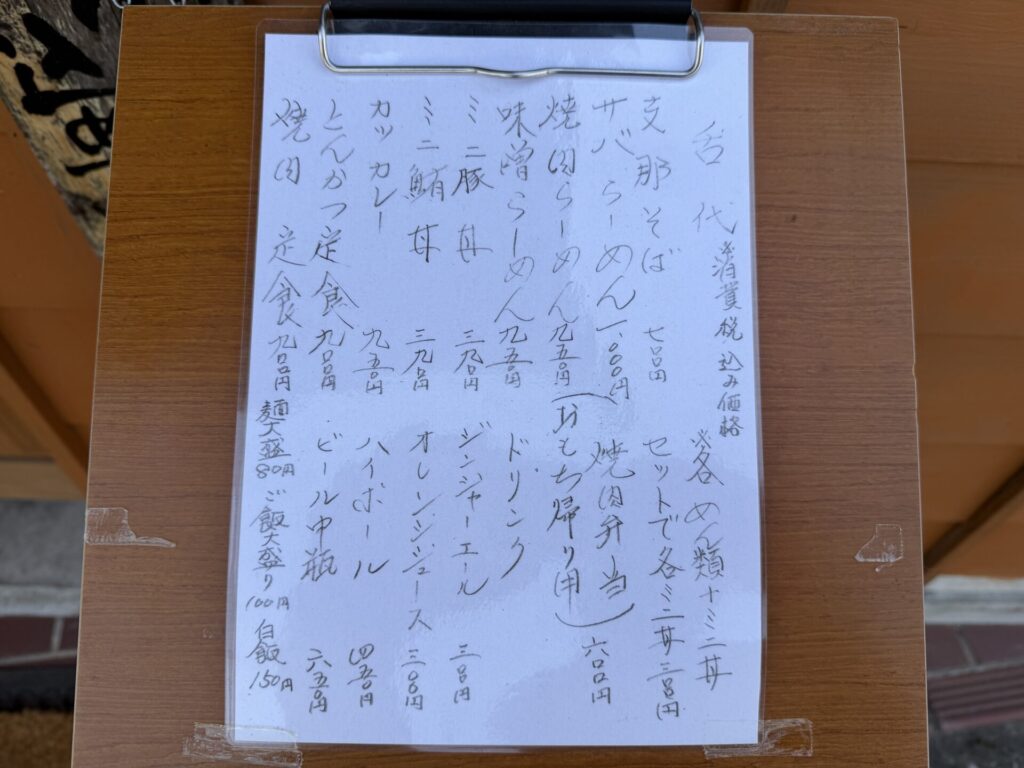 舌代
※消費税込み価格
支那そば 七〇〇円
サバらーめん 一、〇〇〇円
焼肉らーめん 九五〇円
味噌らーめん 九五〇円
ミニ豚丼 三九〇円
ミニ鮪丼 三九〇円
カツカレー 九五〇円
とんかつ定食 九〇〇円
焼肉定食 九〇〇円
※各めん類+ミニ丼
セットで各ミニ丼 三五〇円
焼肉弁当 六〇〇円
(おもち帰り用)
ドリンク
ジンジャーエール 三〇〇円
オレンジジュース 三〇〇円
ハイボール 四五〇円
ビール中瓶 六五〇円
麺大盛80円 ご飯大盛り100円 白飯150円